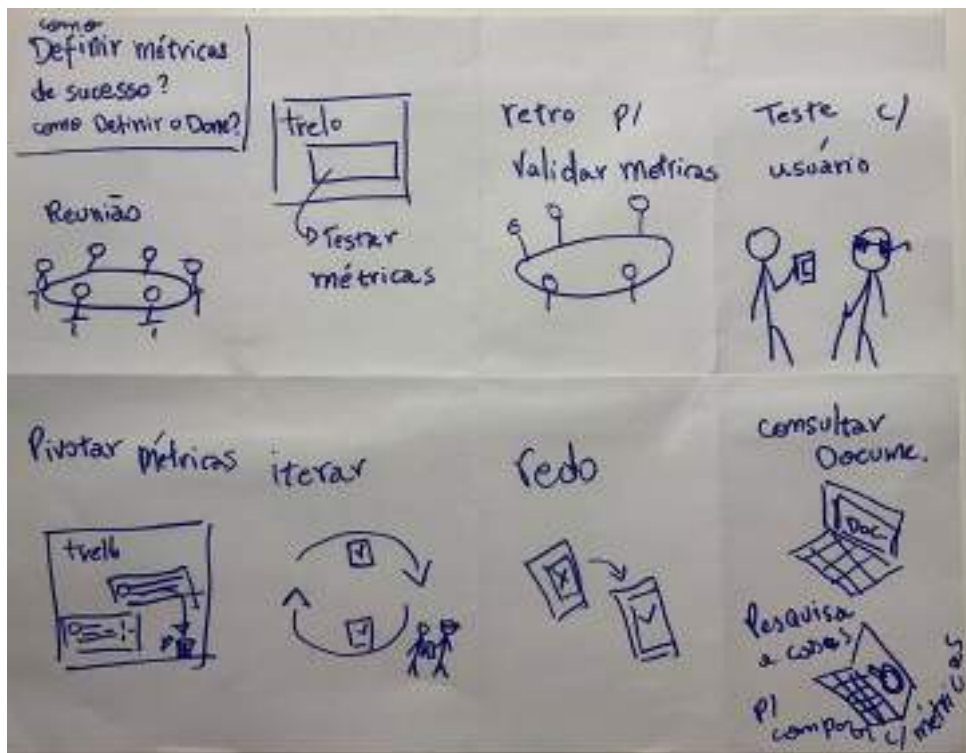 como
Definir métricas
de sucesso?
como Definir o Done?
Reunião
trelo
Testar
métricas
retro p/
Validar métricas
Teste c/
usuário
Pivotar métricas
trello
iterar
redo
consultar
Docume.
Doc.
Pesquisa
e cases
p/
c/ métricas